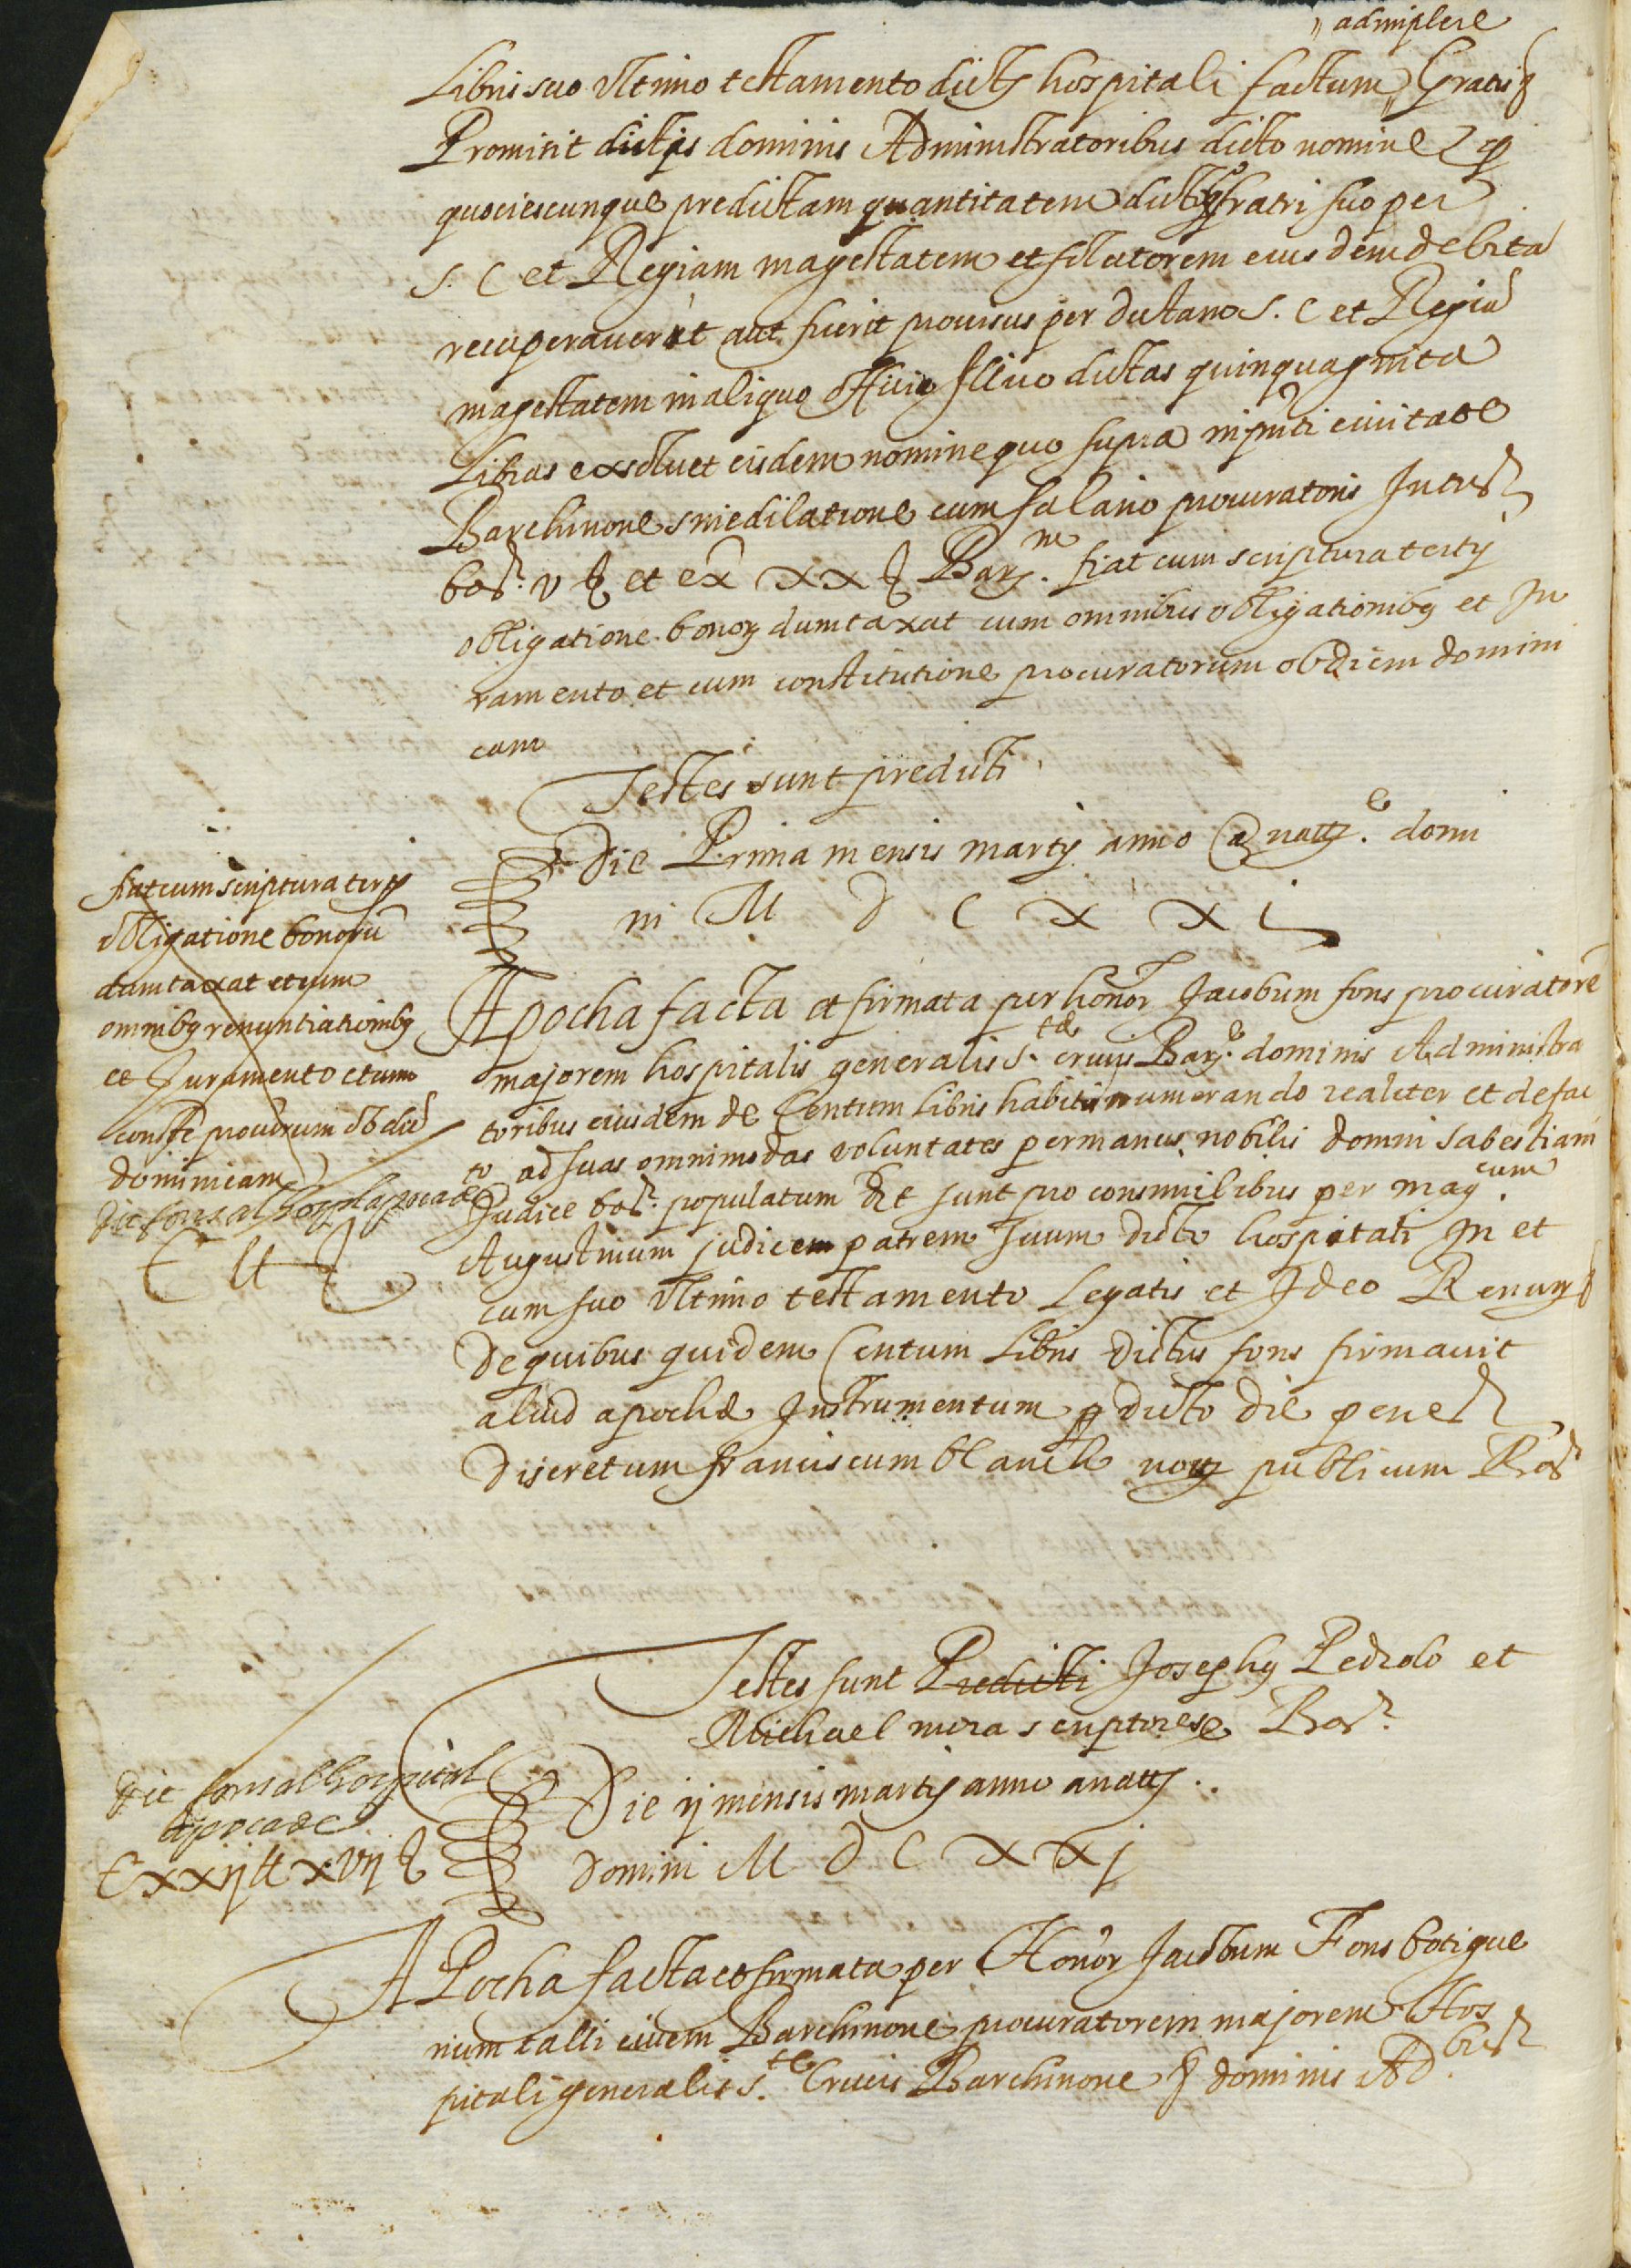 adimplere
Libris suo ultimo testamento dicto hospitali factum Gratis
Promitit dictis dominis Administratoribus dicto nomine q
quociescunque predictam quantitatem dicto fratri suo per
S. C et Regiam magestatem et solutorem eius dem debita
recuperaverit aut fuerit provisus per dictam S. C et Regiã
magestatem in aliquo officio Illico dictas quinquaginta
Libras exsolvet eisdem nomine quo supra in pnti civitate
Barchinone sine dilatione cum salario procuratoris Intus
bar. v § et ex xx § Barᵐ. fiat cum scriptura tertij
obligatione bonor dumtaxat cum omnibus obligationibus et Ju
ramento et cum constitutione procuratorum ob diem domini
cam
Testes sunt predicti
Die Prima mensis martij anno a natte. domi
ni M D C X X i
fiat cum scriptura tertij
obligatione bonorũ
dumtaxat et cum
omnibus renuntiationibus
et Juramento et cum
constt procurũrum ob diẽ
dominicam
dit fons al hospital apoca de
C ll
Apocha facta et firmata per honor Jacobum fons procuratorẽ
majorem hospitalis generalis S.tæ crucis Bare. dominis Administra
toribus eiusdem de Centum Libris habitis numerando realiter et de fac
to ad suas omnimodas voluntates per manus nobilis domni Sabestiani
Judice bar. populatum Et sunt pro consimilibus per mag.cum
Augustinum judicem patrem suum dicto hospitali in et
cum suo ultimo testamento Legatis et Ideo Renun
De quibus quidem Centum Libris dictus fons firmavit
aliud apochæ Instrumentum dicto die penes
Discretum franciscum blanch nott publicum Bar
Testes sunt Predicti Josephus Pedrolo et
Michael mira scriptores Bar.
dit fons al hospital
apoca de
Cxxij ll xvij §
Die ij mensis martij anno a natt.
Domini M D C X X j
APocha facta et firmata per Honor Jacobum Fons botigue
rium talli civem Barchinone procuratorem majorem Hos
pitali generalis S.te Crucis Barchinone dominis Ad.bus